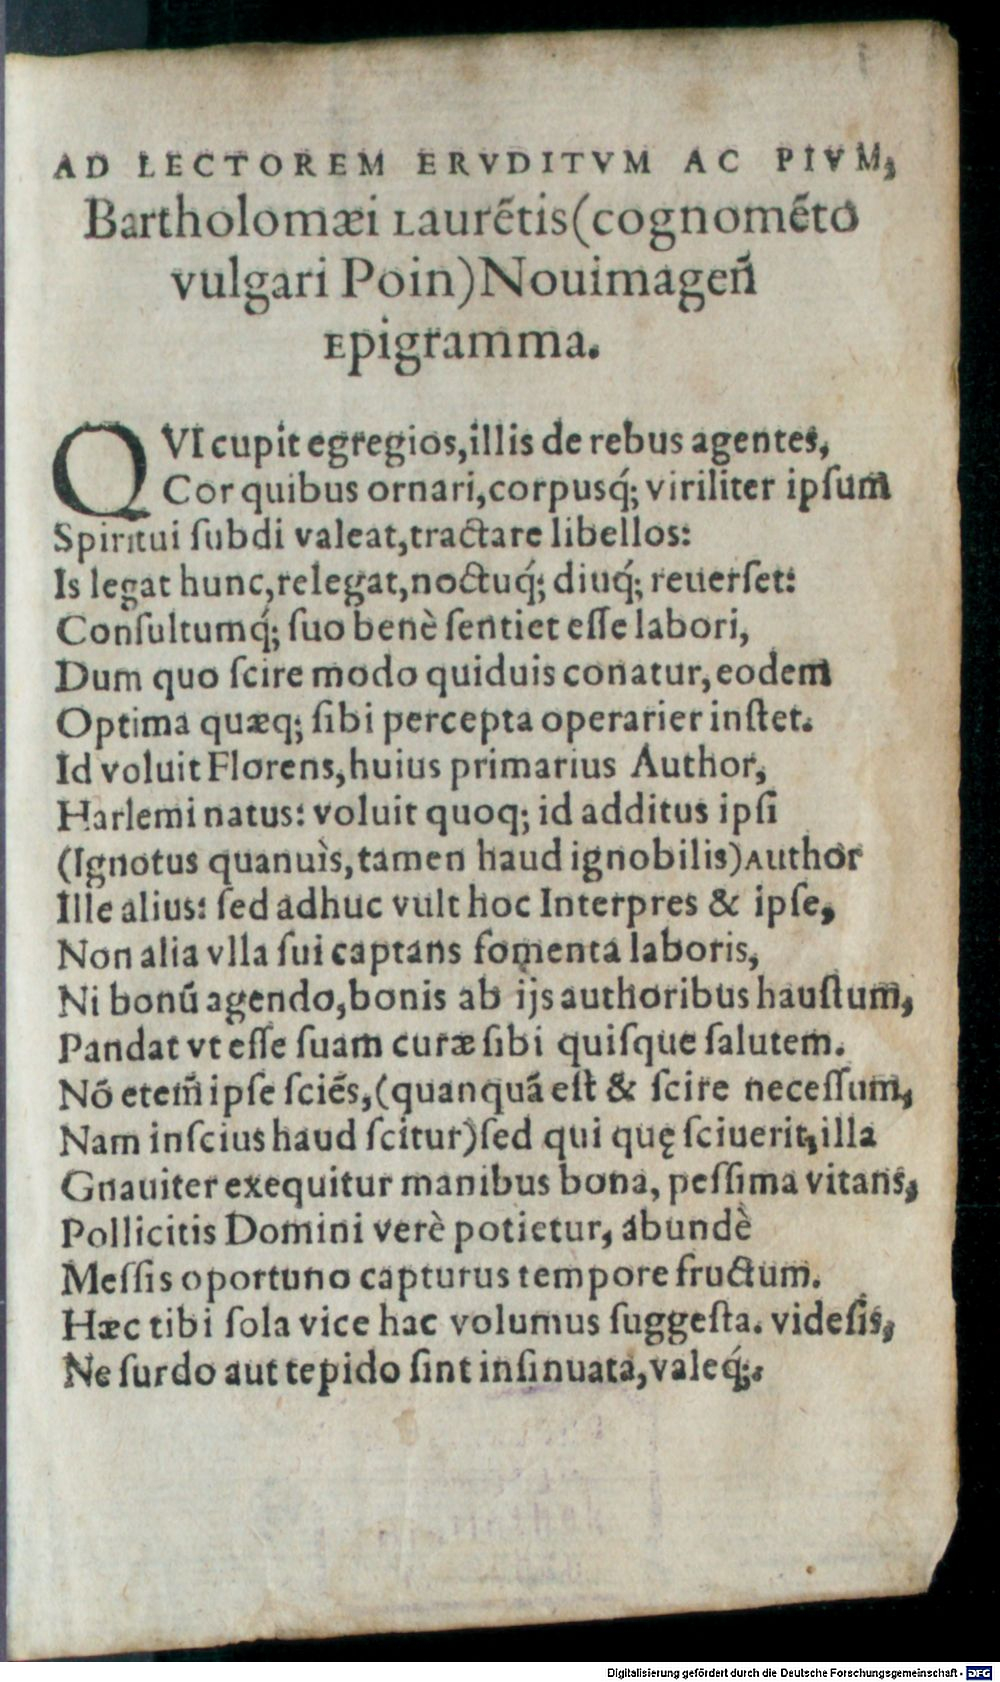 AD LECTOREM ERVDITVM AC PIVM,
Bartholomæi Laurẽtis(cognomẽto
vulgari Poin)Nouimageñ
Epigramma.
QVI cupit egregios,illis de rebus agentes,
Cor quibus ornari,corpusq́; viriliter ipſum
Spiritui ſubdi valeat,tractare libellos:
Is legat hunc,relegat,noctuq́; diuq́; reuerſet:
Conſultumq́; ſuo benè ſentiet eſſe labori,
Dum quo ſcire modo quiduis conatur,eodem
Optima quæq; ſibi percepta operarier inſtet.
Id voluit Florens,huius primarius Author,
Harlemi natus: voluit quoq; id additus ipſi
(Ignotus quanuìs,tamen haud ignobilis)Author
Ille alius: ſed adhuc vult hoc Interpres & ipſe,
Non alia vlla ſui captans fomenta laboris,
Ni bonũ agendo,bonis ab ijs authoribus hauſtum,
Pandat vt eſſe ſuam curæ ſibi quiſque ſalutem.
Nõ etem̃ ipſe ſciẽs,(quanquã eſt & ſcire neceſſum,
Nam inſcius haud ſcitur)ſed qui quę ſciuerit,illa
Gnauiter exequitur manibus bona, peſſima vitans,
Pollicitis Domini verè potietur, abundè
Meſſis oportuno capturus tempore fructum.
Hæc tibi ſola vice hac volumus ſuggeſta. videſis,
Ne ſurdo aut tepido ſint inſinuata,valeq́;.
Digitalisierung gefördert durch die Deutsche Forschungsgemeinschaft - DFG